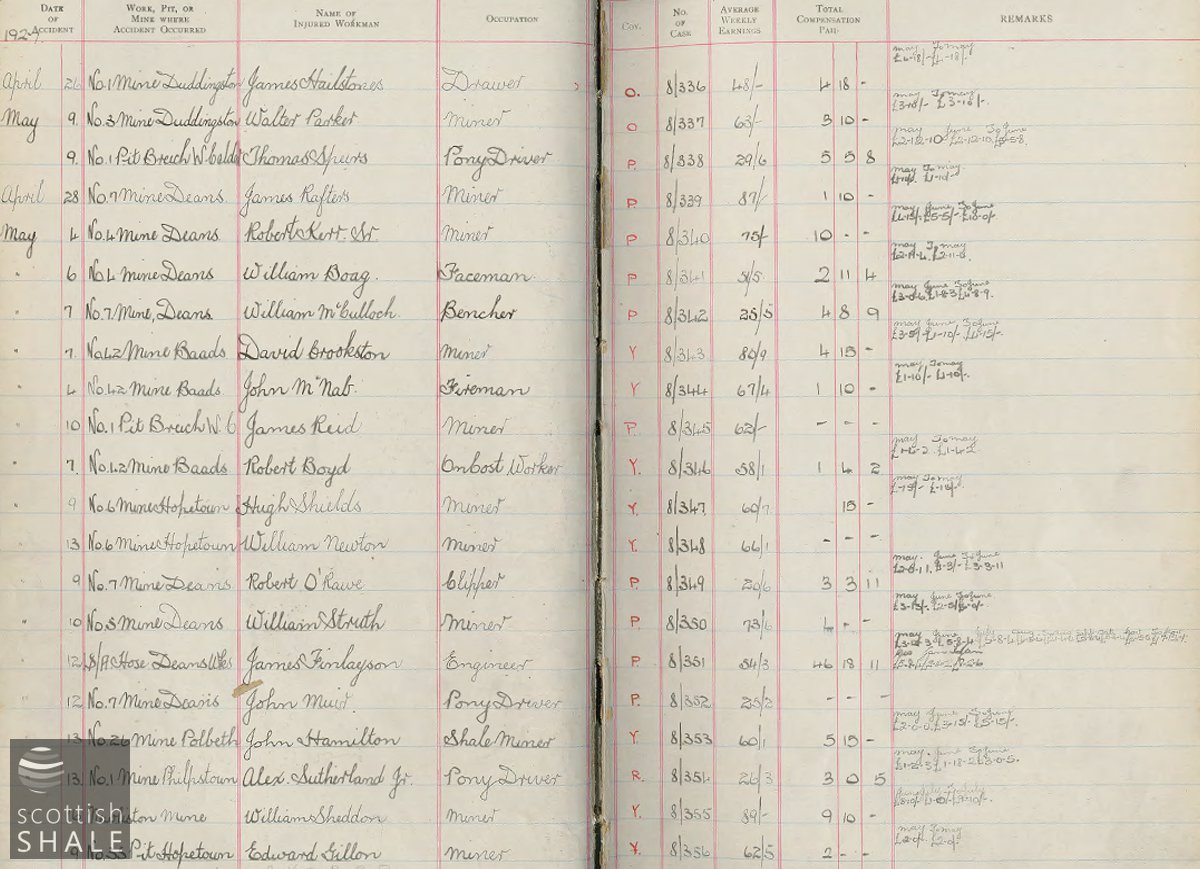 DATE OF ACCIDENT WORK, PIT, OR MINE WHERE ACCIDENT OCCURRED NAME OF INJURED WORKMAN OCCUPATION Coy. No. OF CASE AVERAGE WEEKLY EARNINGS TOTAL COMPENSATION PAID REMARKS
192
April 26 No.1 Mine Duddingston James Hailstones Drawer O. 8/336 48/- 4 18 - May To May
May 9. No.3 Mine Duddingston Walter Parker Miner O 8/337 63/- 3 10 - May To May £3-10/- £3-10/-.
9. No.1 Pit Breich W. Calder Thomas Speirs Pony Driver P. 8/338 29/6 5 5 8 May June To June £2-12-10 £5-5-8.
April 28 No.7 Mine Deans. James Rafters Miner P. 8/339 87/- 1 10 - May To May £1-10/-
May 4 No.4 Mine Deans Robert Kerr. Sr. Miner P 8/340 75/- 10 - - May June To June £4-15/- £5-5/- £10-0/-
" 6 No.4 Mine Deans William Boag. Faceman. P 8/341 51/5 2 11 4 May To May
" 7 No.7 Mine, Deans. William McCulloch. Bencher P 8/342 25/5 4 8 9 May June To June £4-8-9.
" 7. No.42 Mine Baads David Crookston Miner Y 8/343 80/9 4 15 - May June To June £3-5/- £1-10/- £4-15/-
" 4 No.42 Mine Baads John McNab. Fireman Y 8/344 67/4 1 10 - May To May £1-10/- £1-10/-.
" 10 No.1 Pit Breich W. C James Reid Miner P. 8/345 62/- - - -
" 7. No.42 Mine Baads Robert Boyd Onbost Worker Y. 8/346 58/1 1 4 2 May To May £1-4-2 £1-4-2
" 9 No.6 Mines Hopetown Hugh Shields Miner Y. 8/347 60/7 15 - May To May £-15/- £-15/-
13 No.6 Mines Hopetown William Newton Miner Y. 8/348 66/1 - - -
9 No.7 Mine Deans Robert O'Rawe Clipper P. 8/349 20/6 3 3 11 May. June To June £3-3-11
" 10 No.3 Mine Deans William Struth Miner P. 8/350 73/6 4 - - May June To June
12 Hose Deans Wks James Finlayson Engineer P 8/351 54/3 46 18 11 May June
12 No.7 Mine Deans John Muir. Pony Driver P. 8/352 25/2 - - -
13 No.26 Mine Polbeth John Hamilton Shale Miner Y. 8/353 60/1 5 15 - May June To June £2-0-0 £3-15/- £5-15/-.
13. No.1 Mine Philpstoun Alex. Sutherland Jr. Pony Driver R. 8/354 26/3 3 0 5 May. June To June £1-2-3 £1-18-2 £3-0-5.
Mine William Sheddon Miner Y. 8/355 89/- 9 10 - June July To July
9 Pit Hopetown Edward Gillon Miner Y. 8/356 62/5 2 - - May To May £2-0/- £2-0/-
scottish
SHALE